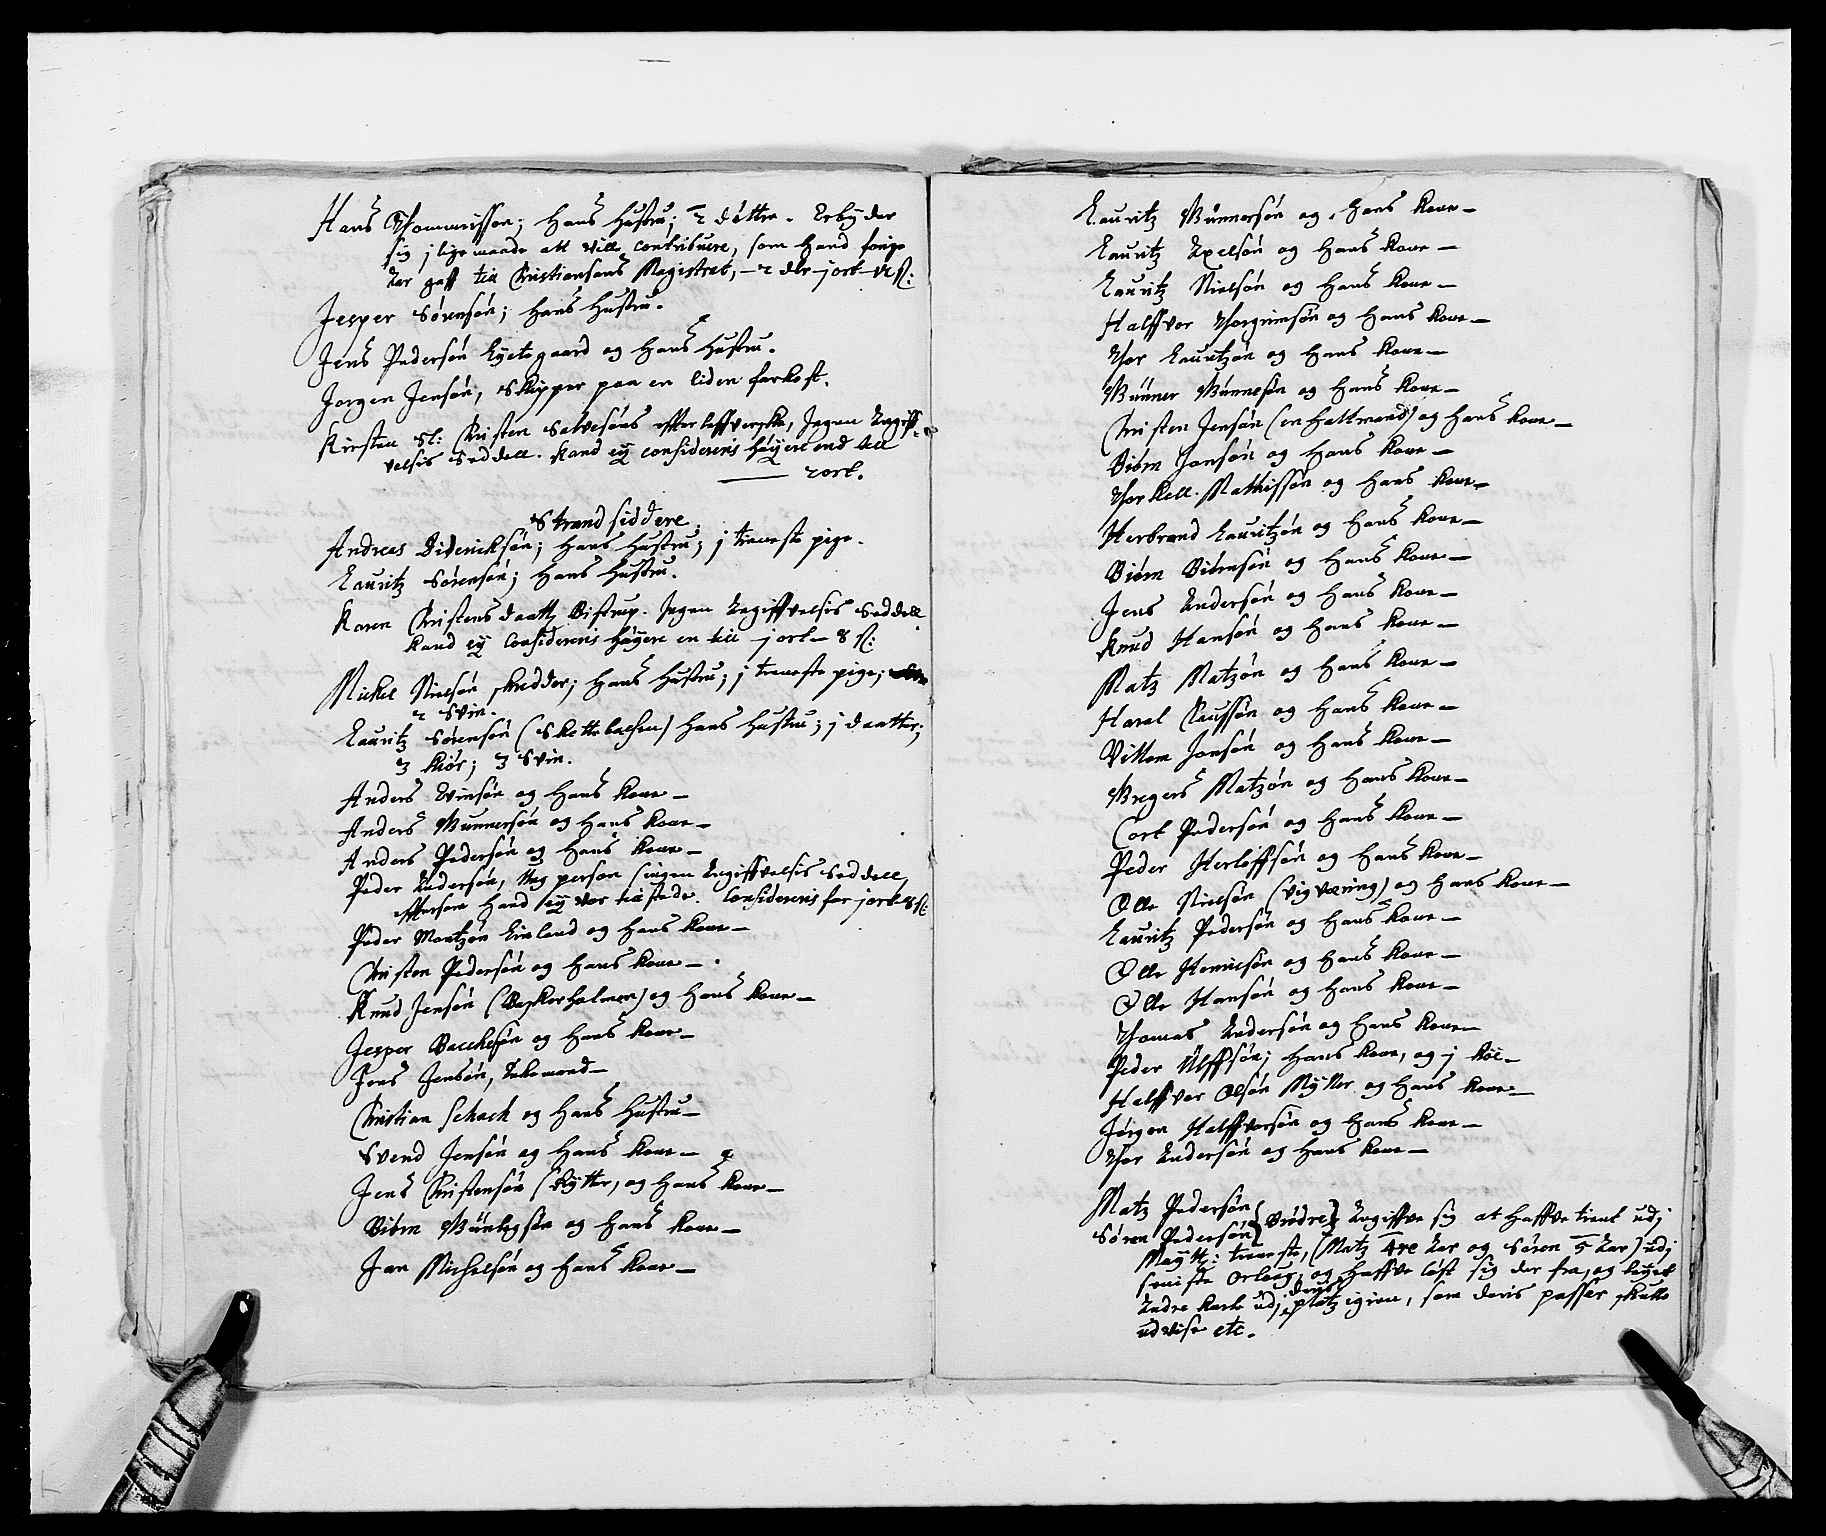 Hans Thommissøn; hans Hustru; 2 døttre. Erbyder
sig j lige maade att ville contribuere, som hand forige
Aar gaff till Christiansans Magistrat, - 2 dlr - j ort - 12 s:
Jesper Sørensøn; hans Hustru.
Jens Pedersøn og hans Hustru.
Jørgen Jensøn, Skipper paa en liden farkost.
Kirsten Sl: Christen Salvesøns effterleffverske, Ingen Angiff-
velsis Seddell. Kand ey consideris høyere end till
2 ort.
Strandsiddere.
Andreas Diderichsøn; hans Hustru; j tieneste pige.
Lauritz Sørensøn; hans Hustru.
Karen Christensdaatt Bistrup. Ingen Angiffvelsis Seddell
kand ey Consideris høyere en till j ort - 8 s:
Mickel Nielsøn skredder; hans Hustru; j tieneste pige;
2 Svin.
Lauritz Sørensøn hans Hustru; j daatter;
3 kiør; 3 Svin.
Anders Evinsøn og hans kone -
Anders Gunnersøn og hans kone -
Anders Pedersøn og hans kone -
Peder Andersøn, Ung person (ingen Angiffvelsis Seddell,
efftersom hand ey var tilstede. Consideris for j ort 8 s:
Peder Mortzøn og hans kone -
Christen Pedersøn og hans kone -
Knud Jensøn og hans kone -
Jesper Bacchesøn og hans kone -
Jens Jensøn, Enkemand -
Christian Schach og hans Hustru -
Svend Jensøn og hans kone -
Jens Christensøn Rytter, og hans kone -
Biørn Gunlegsøn og hans kone -
Jan Michelsøn og hans kone -
Lauritz Gunnersøn og hans kone -
Lauritz Axelsøn og hans kone -
Lauritz Nielsøn og hans kone -
Halffvor Thorgrimsøn og hans kone -
Thor Lauritzøn og hans kone -
Gunner Gunnesøn og hans kone -
Christen Jensøn (en Hattmand) og hans kone -
Biørn Jonsøn og hans kone -
Thorkell Mathissøn og hans kone -
Herbrand Lauritzøn og hans kone -
Biørn Biørnsøn og hans kone -
Jens Andersøn og hans kone -
Knud Hansøn og hans kone -
Matz Matzøn og hans kone -
Haral Claussøn og hans kone -
Villom Jonsøn og hans kone -
Gregers Matzøn og hans kone -
Cort Pedersøn og hans kone -
Peder Herløffsøn og hans kone -
Olle Nielsøn (vigværing) og hans kone -
Lauritz Pedersøn og hans kone -
Olle Henricsøn og hans kone -
Olle Hansøn og hans kone -
Thomas Andersøn og hans kone -
Peder Ulffsøn; hans kone, og j koe -
Halffvor Olsøn Myller og hans kone -
Jørgen Halffvorsøn og hans kone -
Thor Andersøn og hans kone -
Matz Pedersøn
Søren Pedersøn } Brødre } Angiffve sig at haffve tient udj
Maytt: tieneste, (Matz 4re Aar og Søren 5 Aar) udj
seniste Orlog, og haffve løst sig der fra, og leyet
Andre karle udj deris platz igien, som deris passer skulle
udvise etc.